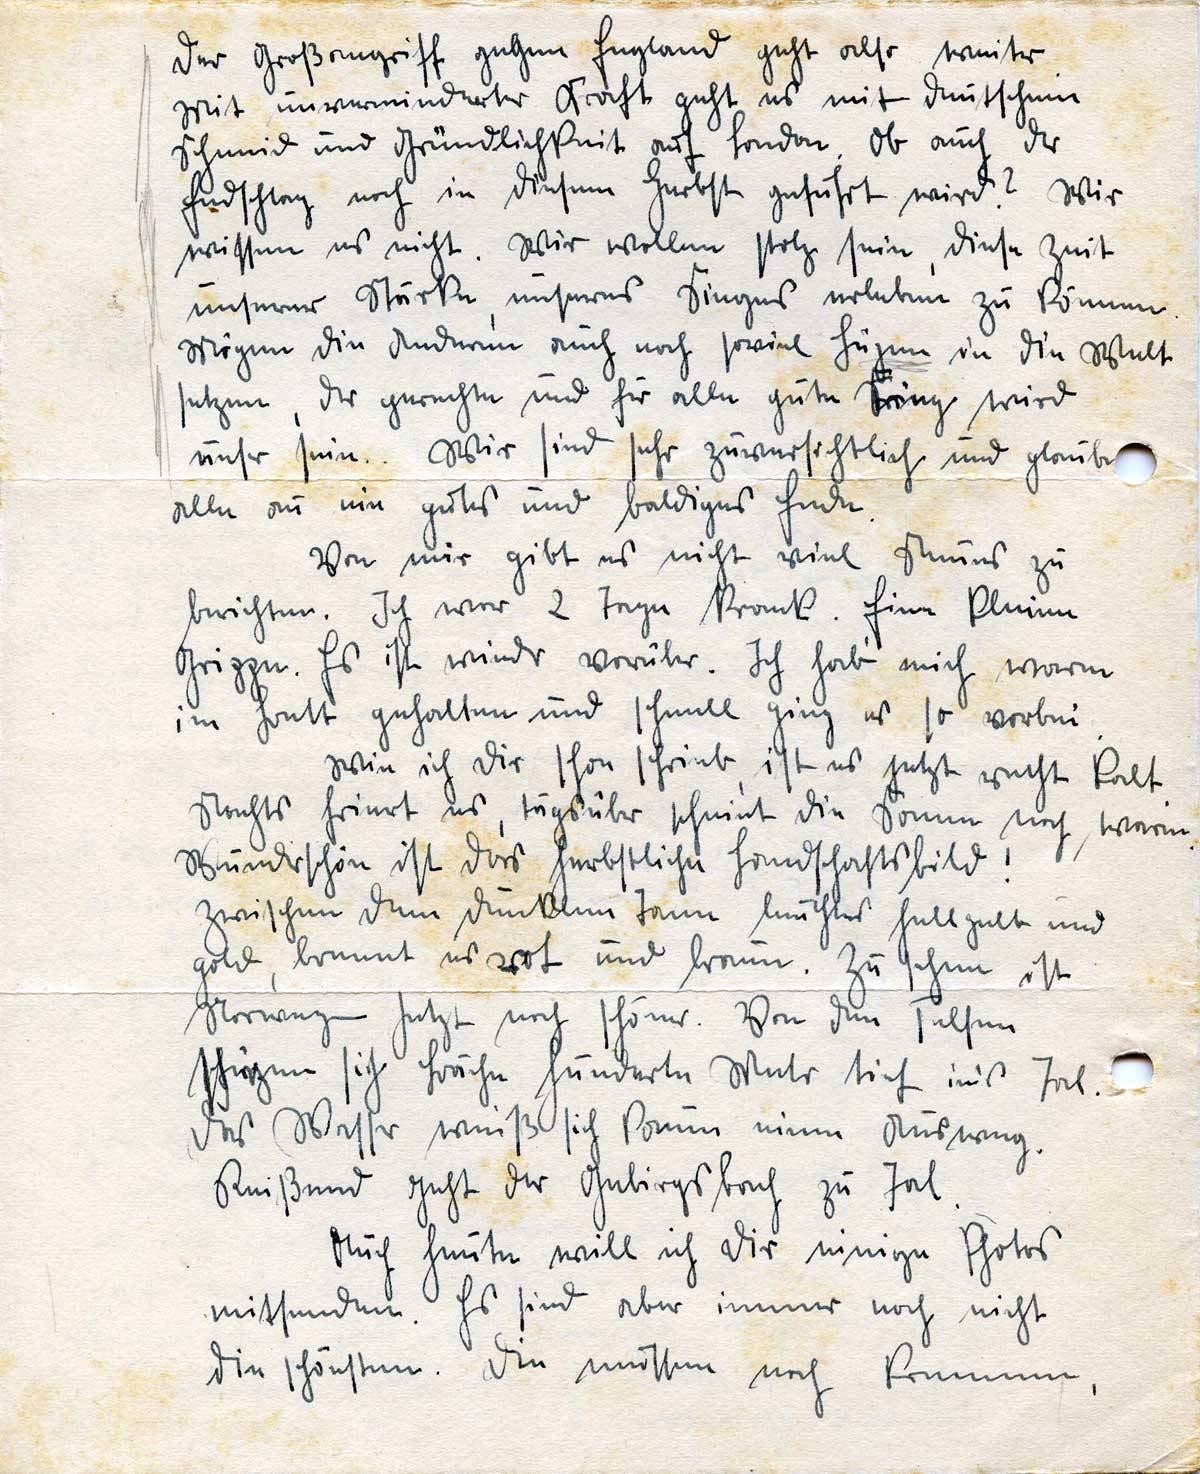 Der Großangriff gegen England geht also weiter.
Mit unverminderter Kraft geht es mit deutschem
Schneid und Gründlichkeit auf London. Ob auch der
Endschlag noch in diesem Herbst geführt wird? Wir
wissen es nicht. Wir wollen stolz sein, diese Zeit
unserer Stärke, unseres Sieges erleben zu können.
Mögen die Anderen auch noch soviel Lügen in die Welt
setzen, der gerechte und für alle gute Sieg wird
unser sein.. Wir sind sehr zuversichtlich und glauben
alle an ein gutes und baldiges Ende.
Von mir gibt es nicht viel Neues zu
berichten. Ich war 2 Tage krank. Eine kleine
Grippe. Es ist wieder vorüber. Ich hab' mich warm
im Bett gehalten und schnell ging es so vorbei.
Wie ich Dir schon schrieb, ist es jetzt recht kalt.
Nachts friert es, tagsüber scheint die Sonne noch warm.
Wunderschön ist das herbstliche Landschaftsbild!
Zwischen dem dunklen Tann leuchtet es hellgelb und
gold, brennt es rot und braun. Zu sehen ist
Norwegen jetzt noch schöner. Von den Felsen
stürzen sich Bäche hunderte Meter tief ins Tal.
Das Wasser weiß sich kaum einen Ausweg.
Reißend geht der Gebirgsbach zu Tal.
Auch heute will ich Dir einige Photos
mitsenden. Es sind aber immer noch nicht
die schönsten. Die müssen noch kommen,